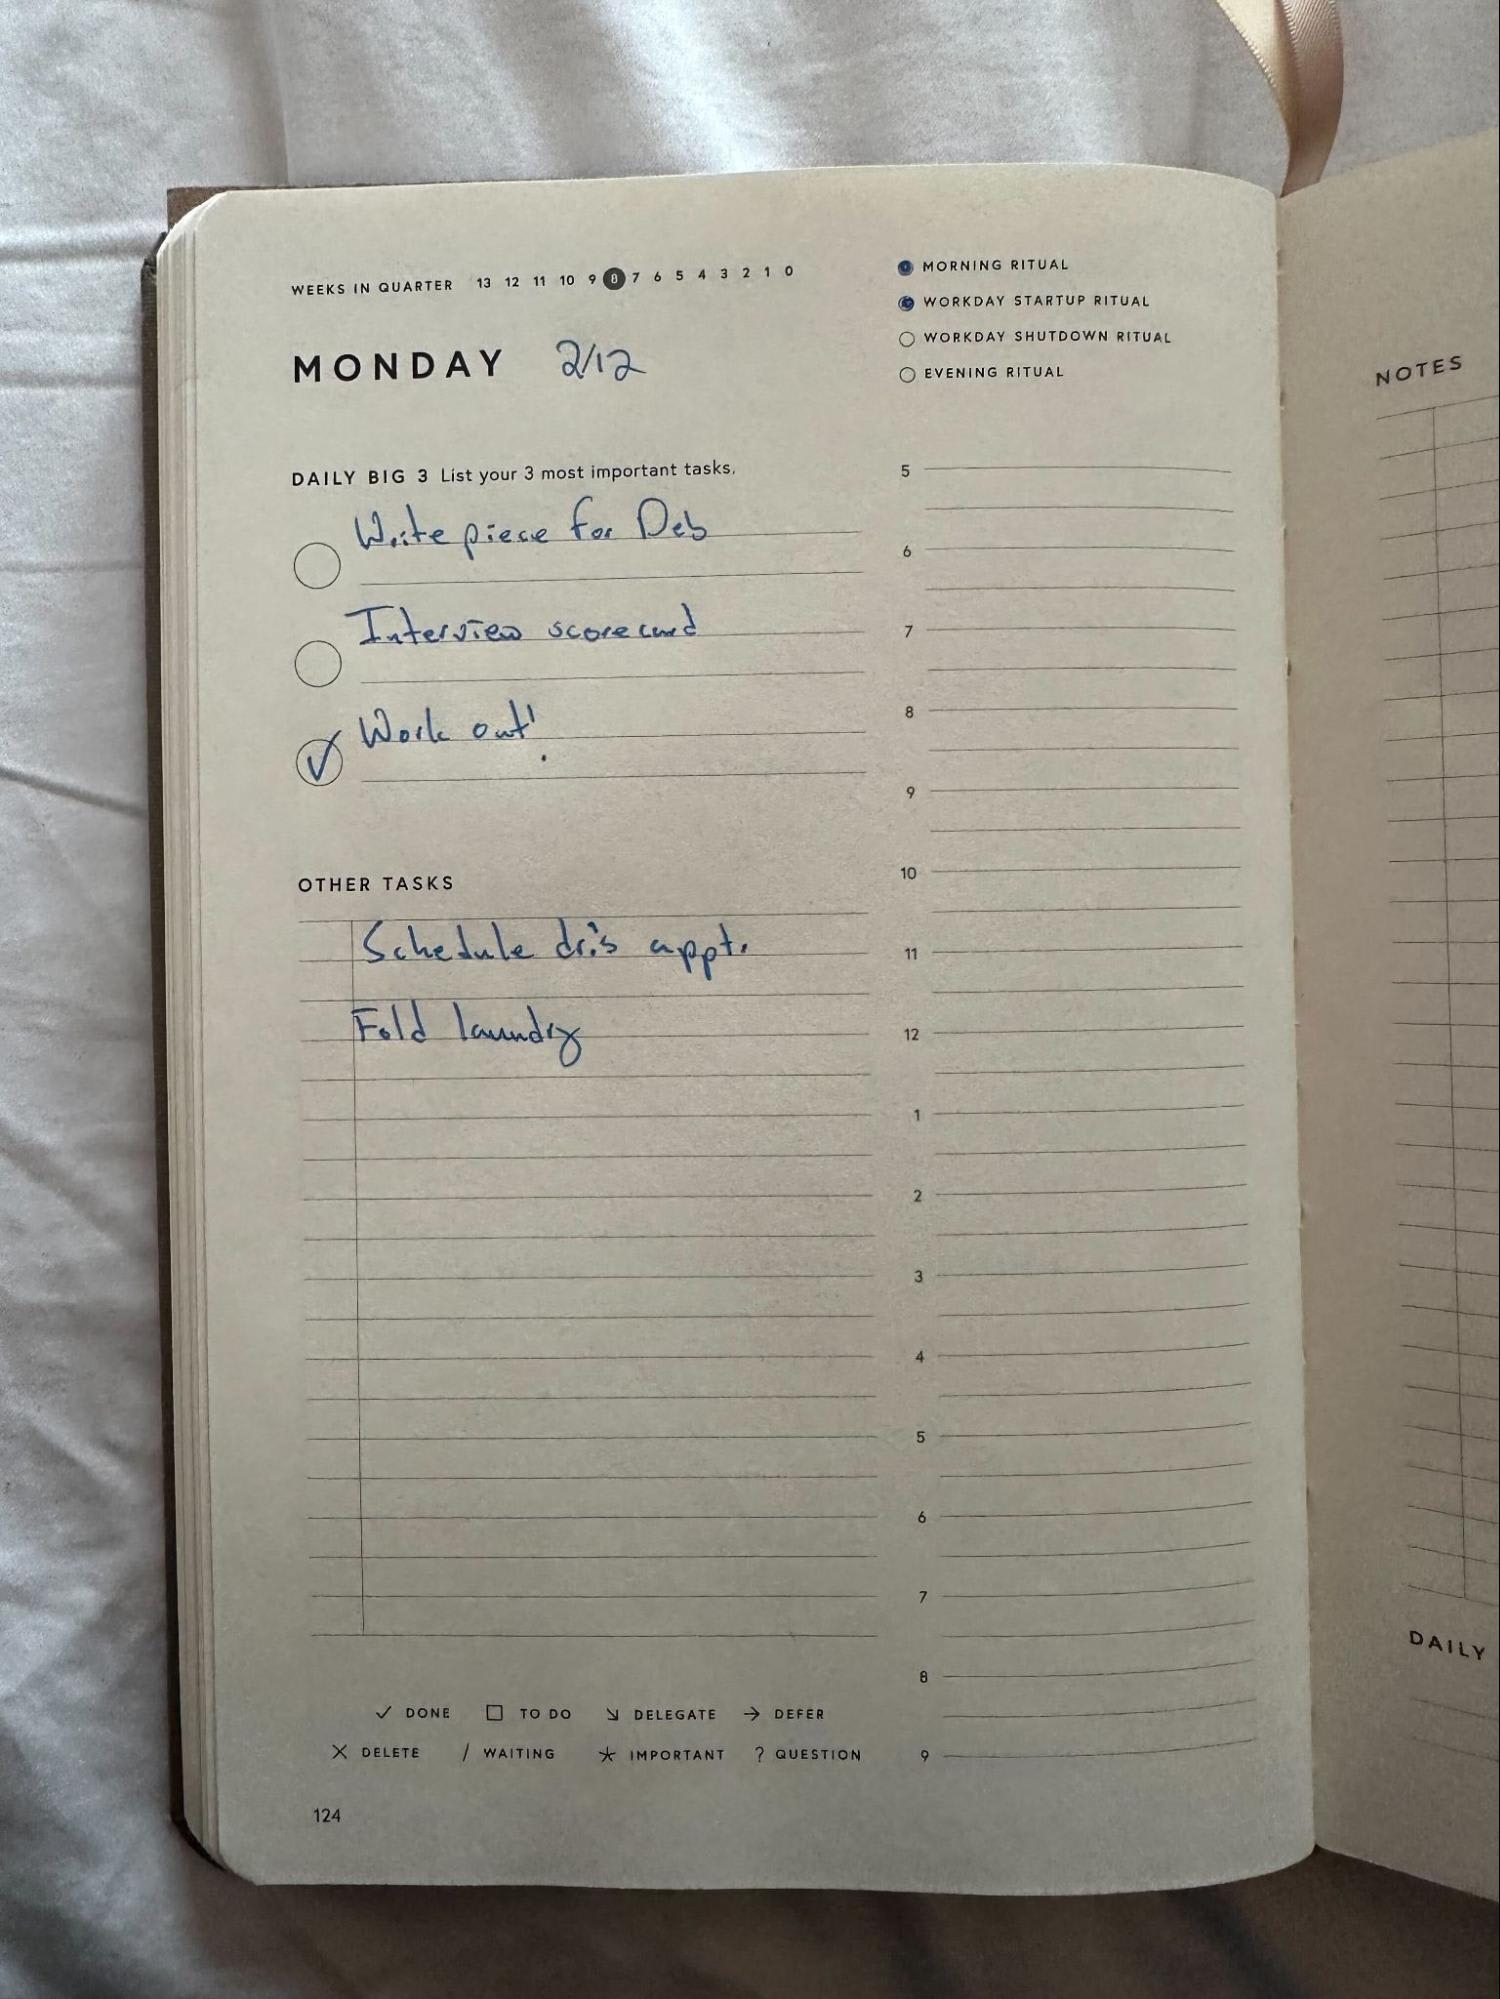 WEEKS IN QUARTER 13 12 11 10 9 8 7 6 5 4 3 2 1 0
MONDAY 2/12
MORNING RITUAL
WORKDAY STARTUP RITUAL
WORKDAY SHUTDOWN RITUAL
EVENING RITUAL
DAILY BIG 3 List your 3 most important tasks.
Write piece for Deb
Interview scorecard
✓ Work out!
OTHER TASKS
Schedule dr.'s appt.
Fold laundry
✓ DONE □ TO DO ↘ DELEGATE → DEFER
✕ DELETE / WAITING * IMPORTANT ? QUESTION
124
5
6
7
8
9
10
11
12
1
2
3
4
5
6
7
8
9
NOTES
DAILY